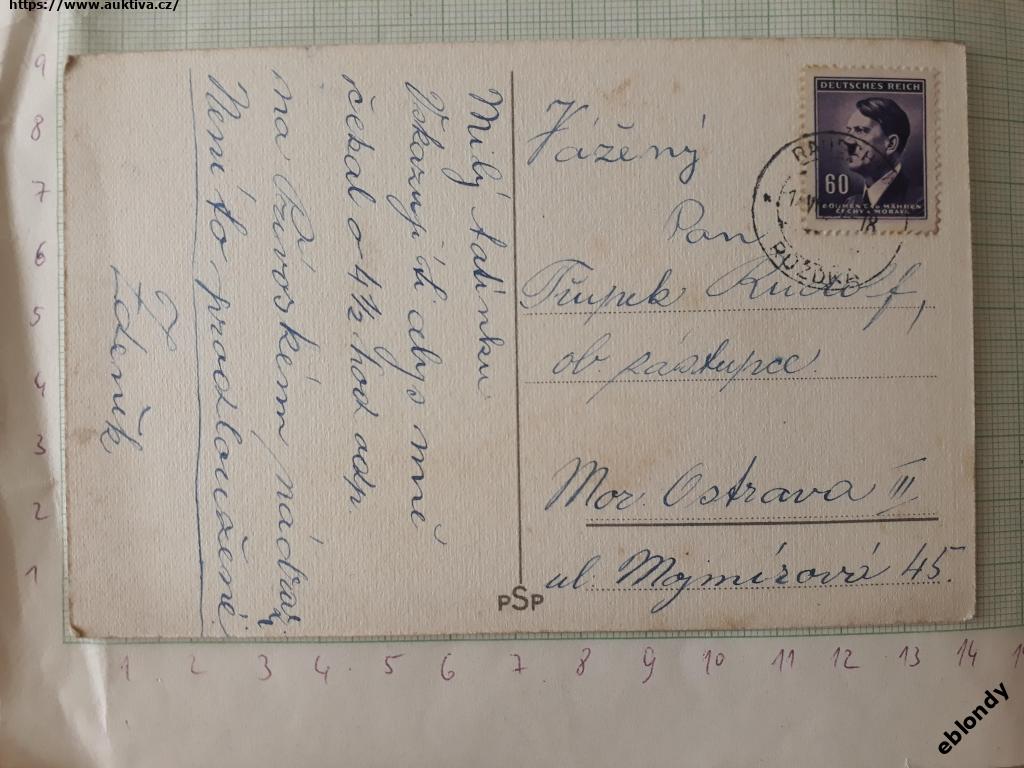 https://www.auktiva.cz/
Milý tatínku
Vzkazuji ti abys mně
čekal o 4½ hod odp.
na Přívoském nádraží
Není to prodloužené
Zdeněk
Vážený
Pan
Rudolf,
ob. zástupce.
Mor. Ostrava II
ul. Mojmírová 45.
PSP
DEUTSCHES REICH
60
BÖHMEN U. MÄHREN
ČECHY A MORAVA
9
8
7
6
5
4
3
2
1
1 2 3 4 5 6 7 8 9 10 11 12 13 14
eblondy